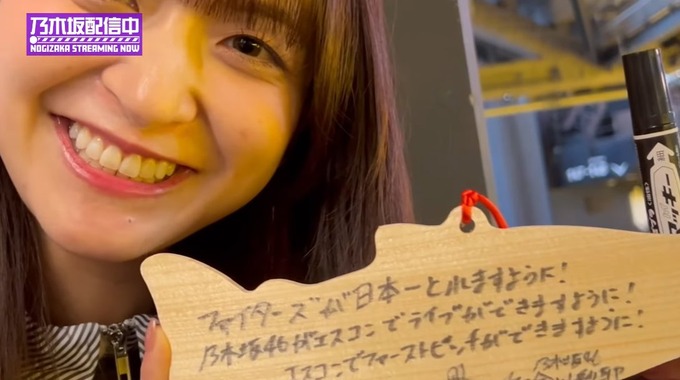 乃木坂配信中
NOGIZAKA STREAMING NOW
ファイターズが日本一とれますように!
乃木坂46がエスコンでライブができますように!
エスコンでファーストピッチができますように!
乃木坂46
マッキー